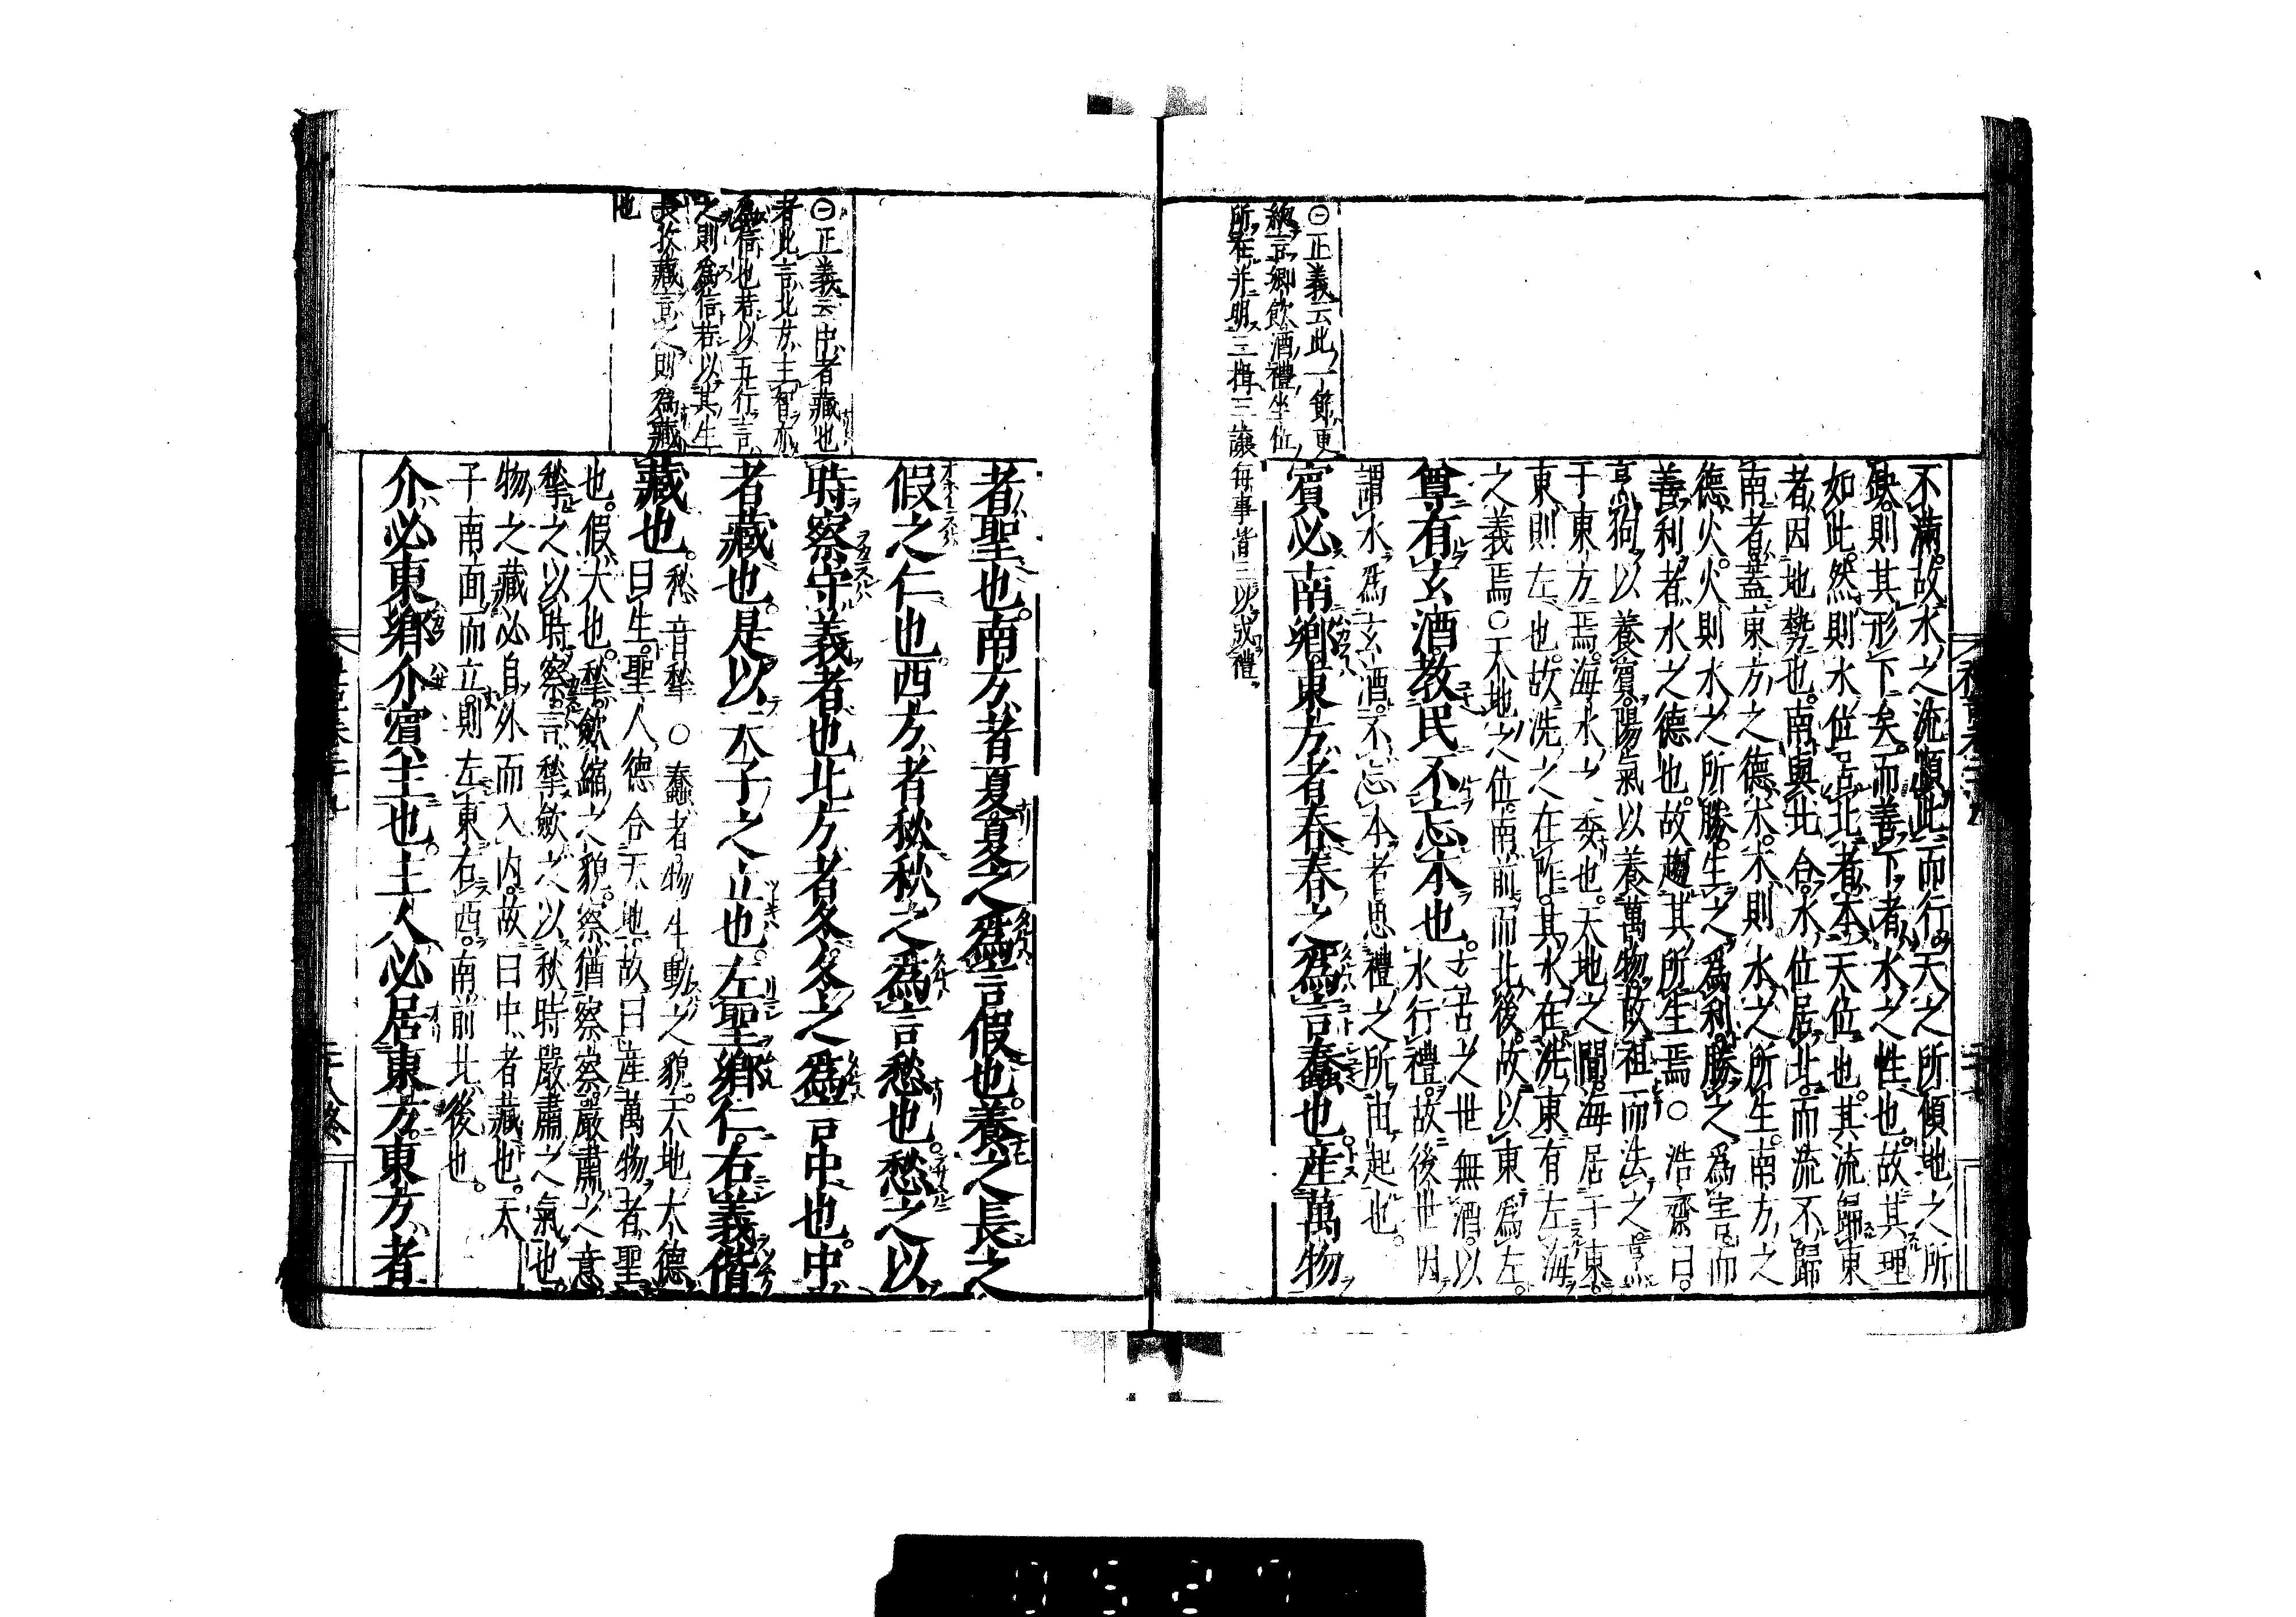 ㊀正義云此一節更
総言郷飲酒禮坐位
所在并明三揖三讓每事皆三以成禮
不滿故水之流傾此而行天之所傾地之所
缺則其形下矣而善下者水之性也故其理
如此然則水位居北者本天位也其流歸東
者因地勢也南與北合水位居北而流不歸
南者蓋東方之德木木則水之所生南方之
德火火則水之所勝生之爲利勝之爲害而
善利者水之德也故趨其所生焉○浩齋曰
烹狗以養賓陽氣以養萬物故祖而法之烹
于東方焉海水之委也天地之間海居于東
東則左也故洗之在阼其水在洗東有左海
之義焉○天地之位南前而北後故以東爲左
尊有玄酒敎民不忘本也太古之世無酒以
水行禮故後世因
謂水爲玄酒不忘本者思禮之所由起也
賓必南鄕東方者春春之爲言蠢也産萬物
者聖也南方者夏夏之爲言假也養之長之
假之仁也西方者秋秋之爲言愁也愁之以
時察守義者也北方者冬冬之爲言中也中
者藏也是以天子之立也左聖鄕仁右義偝
藏也愁音揫○蠢者物生動之貌天地大德
曰生聖人德合天地故曰産萬物者聖
也假大也揫斂縮之貌察猶察察嚴肅之意
揫之以時察言揫斂之以秋時嚴肅之氣也
物之藏必自外而入內故曰中者藏也天
子南面而立則左東右西南前北後也
介必東鄕介賓主也主人必居東方東方者
㊀正義云中者藏也
者此言北方主智亦
爲信也若以五行言
之則爲信若以其生
長收藏言之則爲藏
也